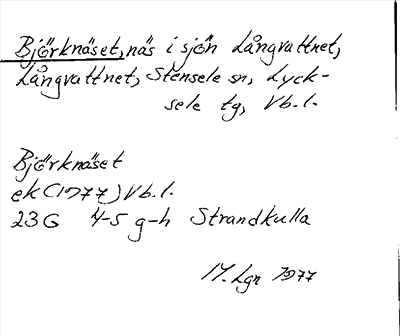 Björknäset, näs i sjön Långvattnet,
Långvattnet, Stensele sn, Lyck-
sele tg, Vb. l.
Björknäset
ek (1977) Vb. l.
23G 4-5 g-h Strandkulla
M. Lgn 1977